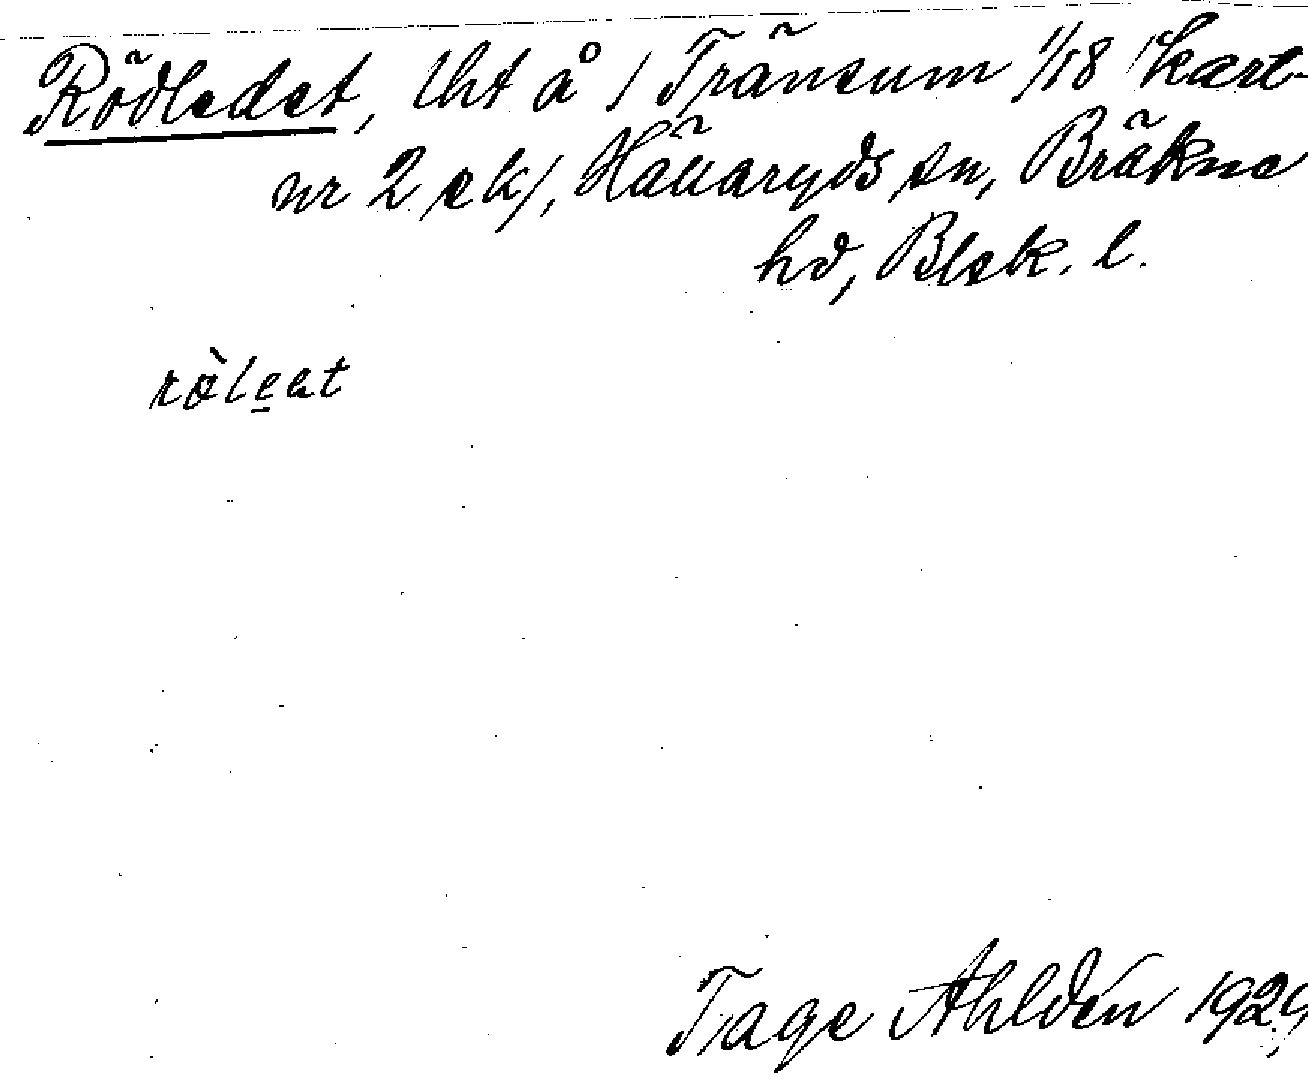 Rödledet, lht å / Tränsum 1/18 kart-
nr 2 ek/, Hällaryds sn, Bräkne
hd, Blek. l.
rö̀lẹet
Tage Ahldén 1929